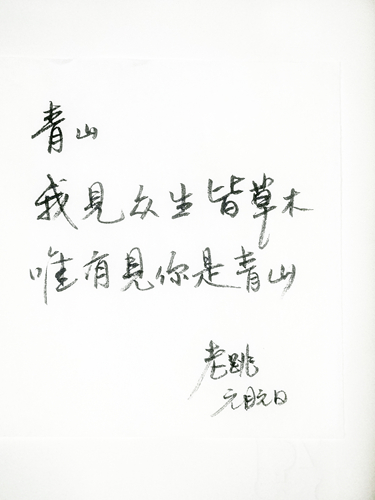 青山
我見众生皆草木
唯有見你是青山
老跳
元月元日